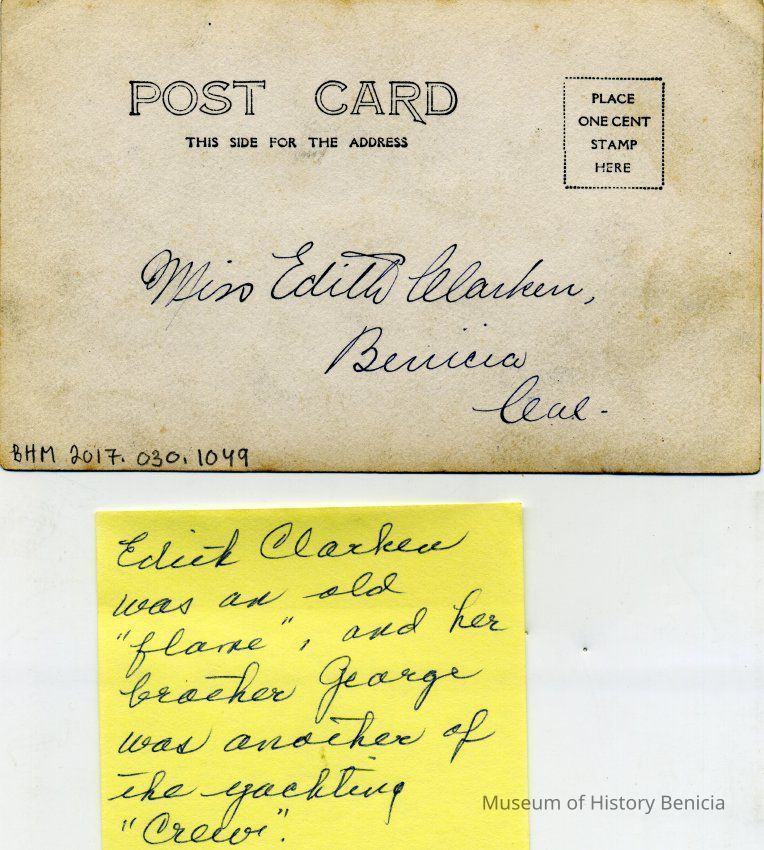 POST CARD
THIS SIDE FOR THE ADDRESS
PLACE
ONE CENT
STAMP
HERE
Miss Edith Clarken,
Benicia
Cal.
BHM 2017.030.1049
Edith Clarken
was an old
"flame", and her
brother George
was another of
the yachting
"Crew".
Museum of History Benicia